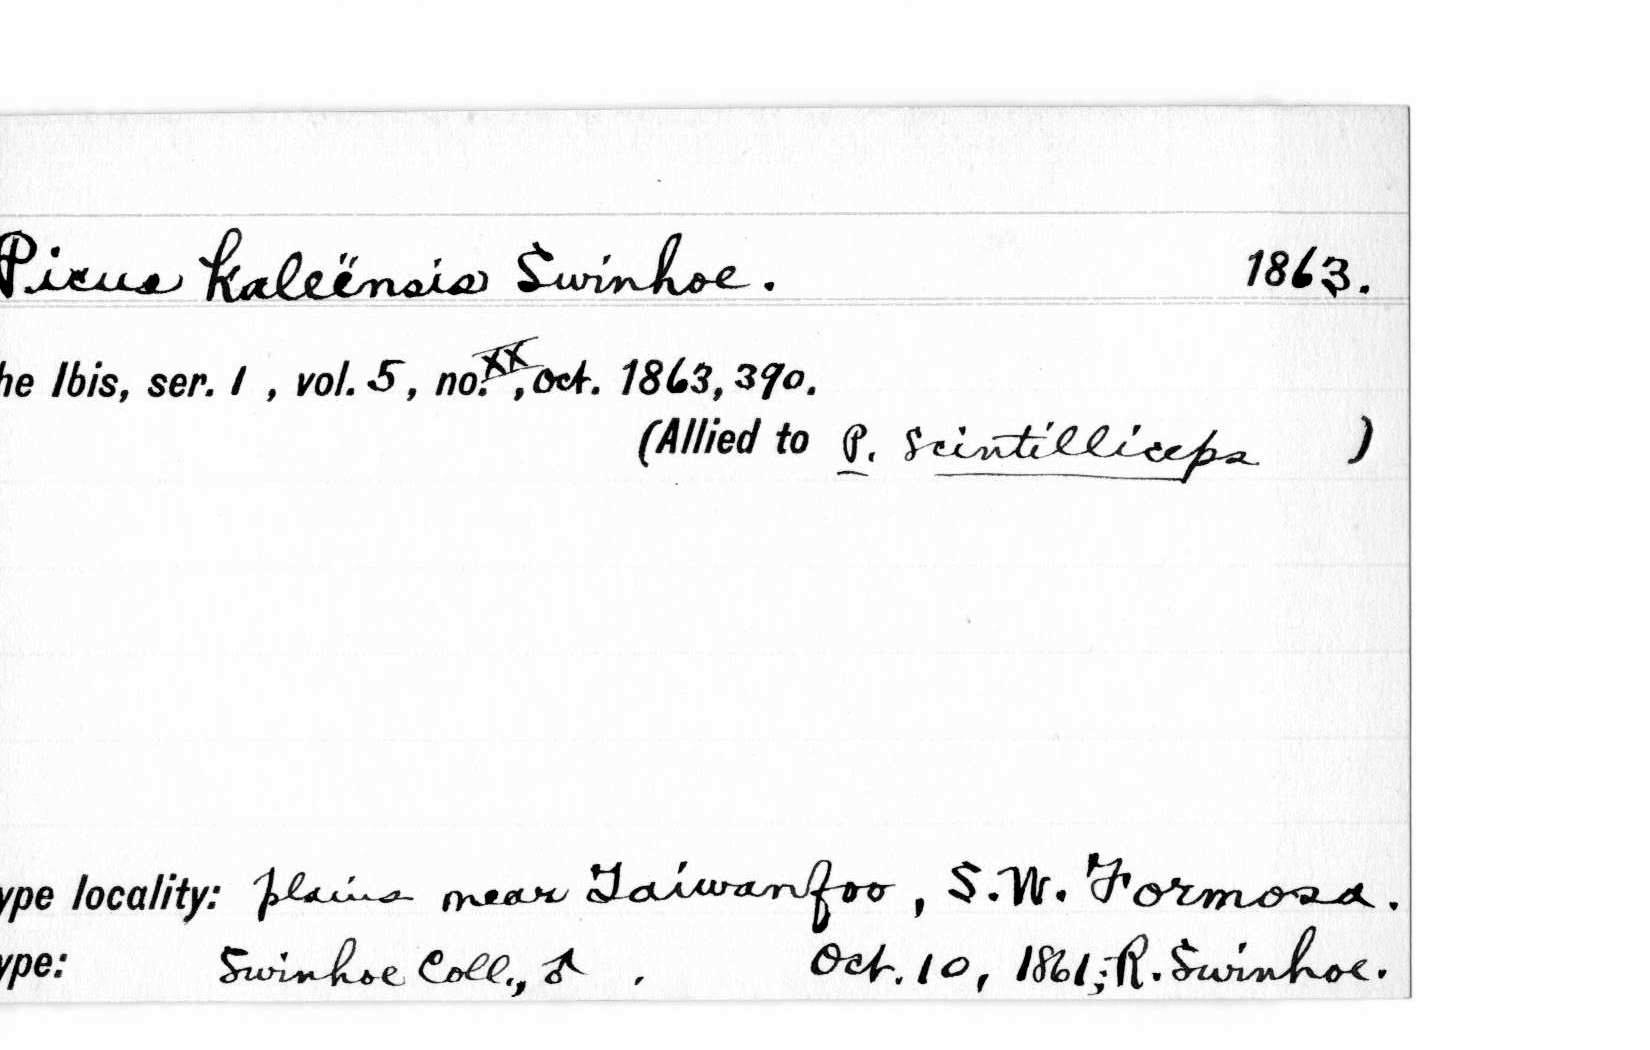 Picus kaleënsis Swinhoe. 1863.
he Ibis, ser. 1 , vol. 5, no. XX, Oct. 1863, 390.
(Allied to P. scintilliceps )
ype locality: plains near Taiwanfoo, S.W. Formosa.
ype: Swinhoe Coll., ♂ . Oct. 10, 1861; R. Swinhoe.